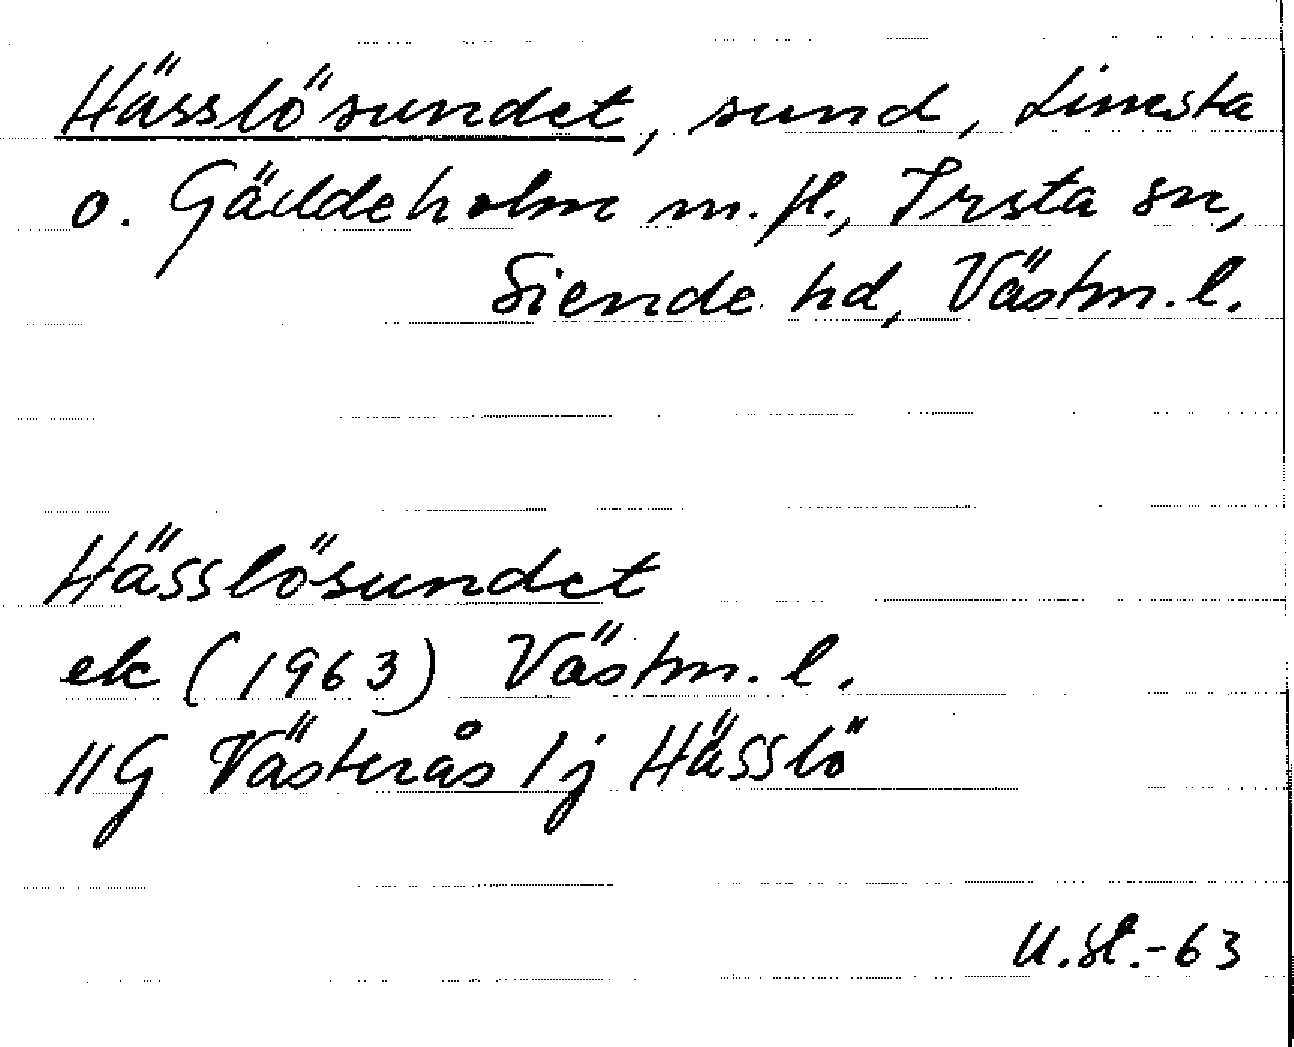 Hässlösundet, sund, Limsta
o. Gäddeholm m.fl., Irsta sn,
Siende hd, Västm. l.
Hässlösundet
ek (1963) Västm. l.
11G Västerås 1j Hässlö
U.St.-63